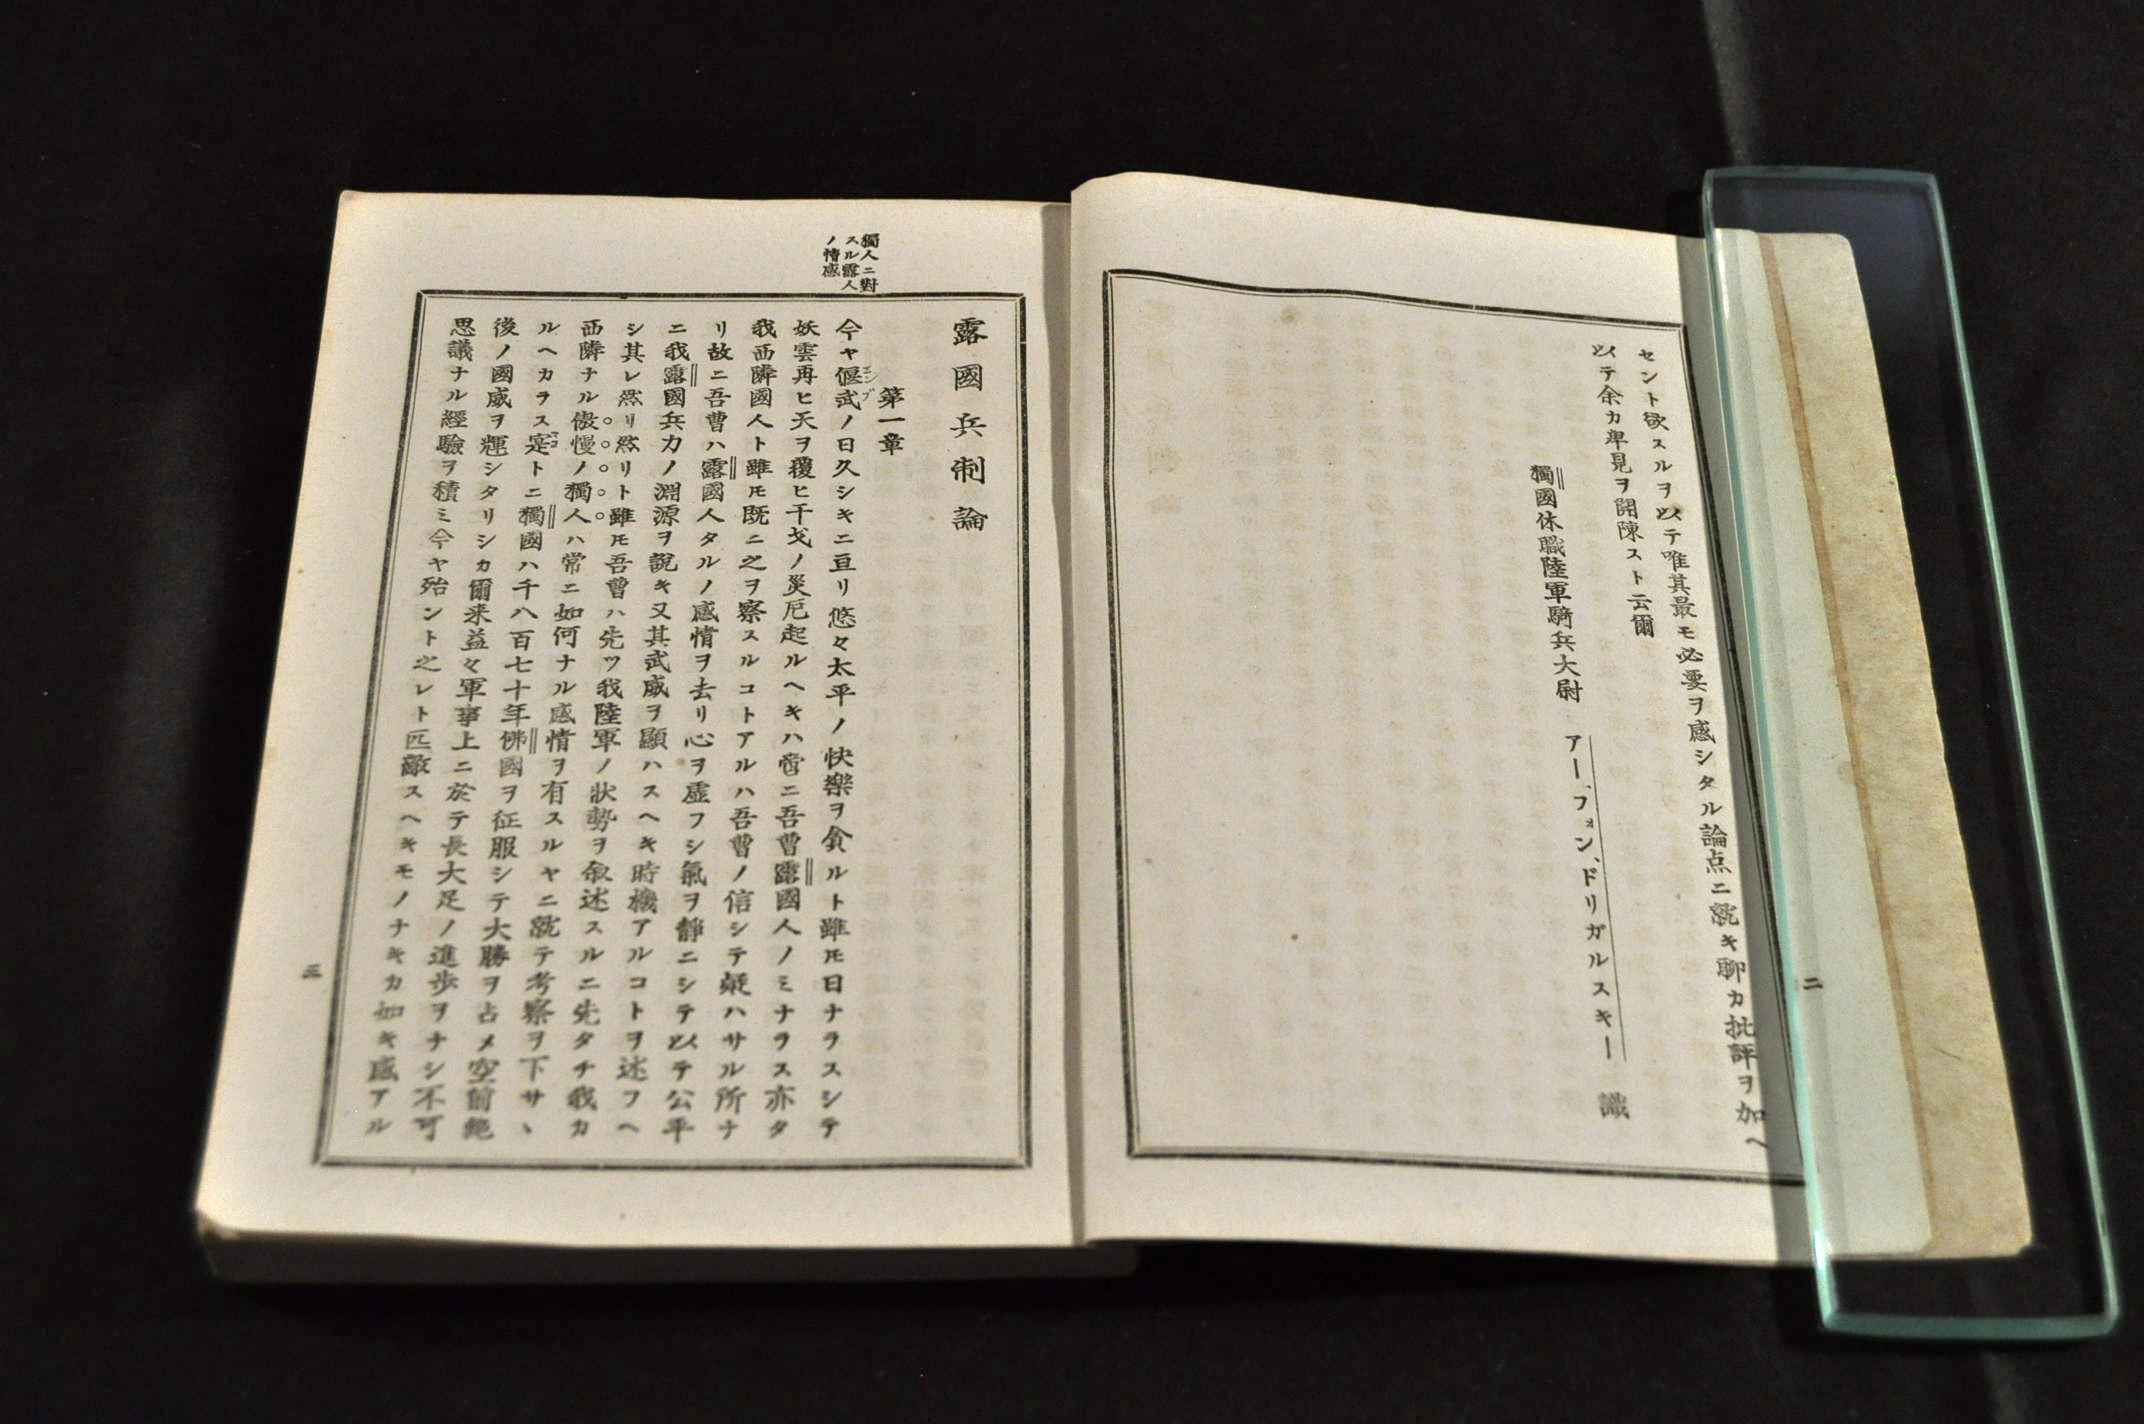 セント欲スルヲ以テ唯其最モ必要ヲ感シタル論点ニ就キ聊カ批評ヲ加ヘ
以テ余カ卑見ヲ開陳スト云爾
獨國休職陸軍騎兵大尉 アー、フォン、ドリガルスキー 識
二
獨人ニ對
スル露人
ノ情感
露國兵制論
第一章
今ヤ偃武ノ日久シキニ亘リ悠々太平ノ快樂ヲ貪ルト雖モ日ナラスシテ
エンブ
妖雲再ヒ天ヲ覆ヒ干戈ノ災厄起ルヘキハ啻ニ吾曹露國人ノミナラス亦タ
我西隣國人ト雖モ既ニ之ヲ察スルコトアルハ吾曹ノ信シテ疑ハサル所ナ
リ故ニ吾曹ハ露國人タルノ感情ヲ去リ心ヲ虚フシ氣ヲ靜ニシテ以テ公平
ニ我露國兵力ノ淵源ヲ說キ又其武威ヲ顯ハスヘキ時機アルコトヲ述フヘ
シ其レ然リ然リト雖モ吾曹ハ先ツ我陸軍ノ狀勢ヲ叙述スルニ先タチ我カ
西隣ナル傲慢ノ獨人ハ常ニ如何ナル感情ヲ有スルヤニ就テ考察ヲ下サヽ
ルヘカラス寔トニ獨國ハ千八百七十年佛國ヲ征服シテ大勝ヲ占メ空前絶
マコ
後ノ國威ヲ輝シタリシカ爾来益々軍事上ニ於テ長大足ノ進歩ヲナシ不可
思議ナル經驗ヲ積ミ今ヤ殆ント之レト匹敵スヘキモノナキカ如キ感アル
三